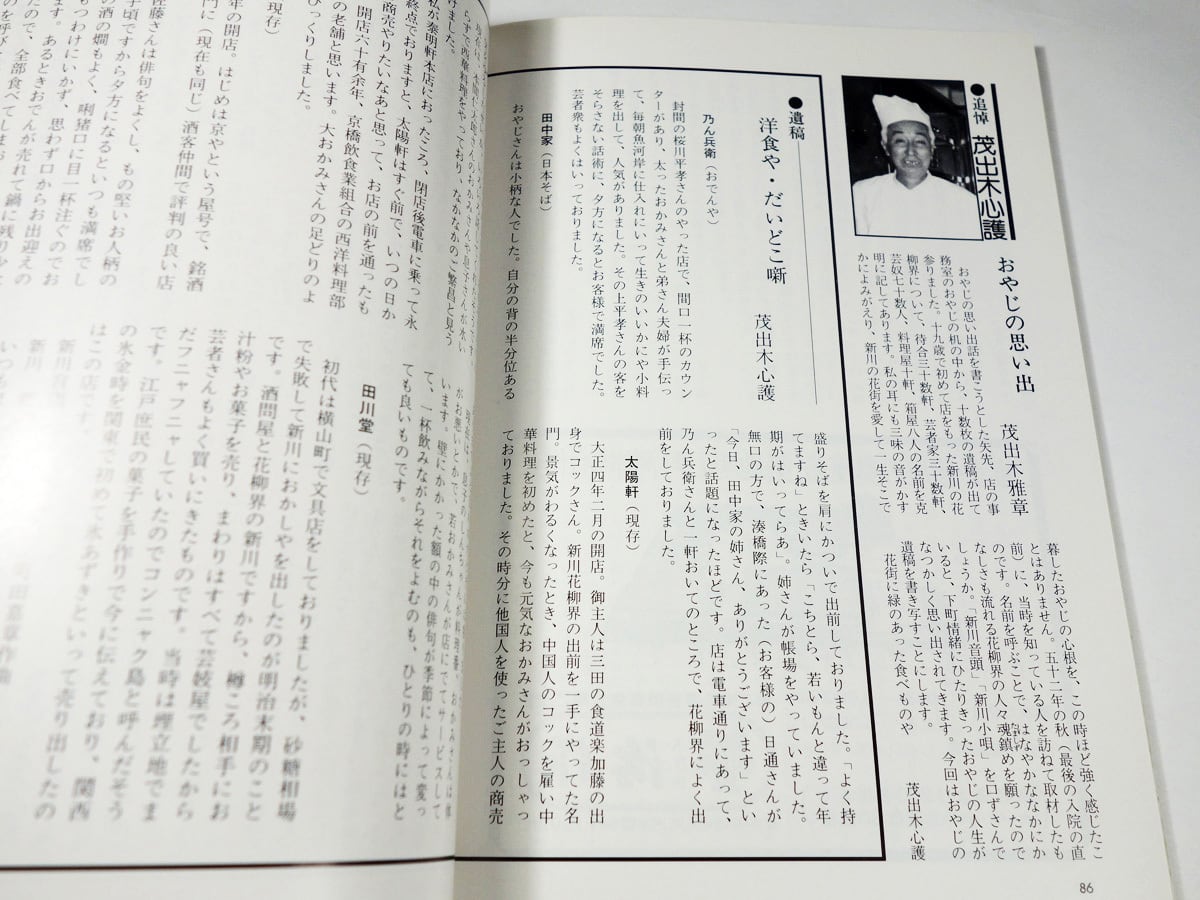 ●追悼 茂出木心護
おやじの思い出
茂出木雅章
おやじの思い出話を書こうとした矢先、店の事
務室のおやじの机の中から、十数枚の遺稿が出て
参りました。十九歳で初めて店をもった新川の花
柳界について、待合三十数軒、芸者家三十数軒、
芸奴七十数人、料理屋十軒、箱屋八人の名前を克
明に記してあります。私の耳にも三味の音がかす
かによみがえり、新川の花街を愛して一生そこで
暮したおやじの心根を、この時ほど強く感じたこ
とはありません。五十二年の秋（最後の入院の直
前）に、当時を知っている人を訪ねて取材したも
のです。名前を呼ぶことで、はなやかななかにか
なしさも流れる花柳界の人々魂鎮めを願ったので
しょうか。「新川音頭」「新川小唄」を口ずさんで
いると、下町情緒にひたりきったおやじの人生が
なつかしく思い出されてきます。今回はおやじの
遺稿を書き写すことにします。
花街に緑のあった食べものや
茂出木心護
●遺稿
洋食や・だいどこ噺
茂出木心護
乃ん兵衛（おでんや）
封間の桜川平孝さんのやった店で、間口一杯のカウン
ターがあり、太ったおかみさんと弟さん夫婦が手伝っ
て、毎朝魚河岸に仕入れにいって生きのいいかにや小料
理を出して、人気がありました。その上平孝さんの客を
そらさない話術に、夕方になるとお客様で満席でした。
芸者衆もよくはいっておりました。
田中家（日本そば）
おやじさんは小柄な人でした。自分の背の半分位ある
盛りそばを肩にかついで出前しておりました。「よく持
てますね」ときいたら「こちとら、若いもんと違って年
期がはいってらあ」。姉さんが帳場をやっていました。
無口の方で、湊橋際にあった（お客様の）日通さんが
「今日、田中家の姉さん、ありがとうございます」とい
ったと話題になったほどです。店は電車通りにあって、
乃ん兵衛さんと一軒おいてのところで、花柳界によく出
前をしておりました。
太陽軒（現存）
大正四年二月の開店。御主人は三田の食道楽加藤の出
身でコックさん。新川花柳界の出前を一手にやってた名
門。景気がわるくなったとき、中国人のコックを雇い中
華料理を初めたと、今も元気なおかみさんがおっしゃっ
ておりました。その時分に他国人を使ったご主人の商売
けました。
私が泰明軒本店におったころ、閉店後電車に乗って永
終点でおりますと、太陽軒はすぐ前で、いつの日か
商売やりたいなあと思って、お店の前を通ったも
開店六十有余年、京橋飲食業組合の西洋料理部
の老舗と思います。大おかみさんの足どりのよ
びっくりしました。
（現存）
年の開店。はじめは京やという屋号で、銘酒
門に（現在も同じ）酒客仲間で評判の良い店
佐藤さんは俳句をよくし、もの堅いお人柄の
子頃ですから夕方になるといつも満席でし
の酒の燗もよく、唎猪口に目一杯注ぐのでお
もつわけにいかず、思わず口からお出迎えの
ます。あるときおでんが売れて鍋に残り少
たので、全部食べてしまお
います。壁にかかった額の中の俳句が季節によって変っ
て、一杯飲みながらそれをよむのも、ひとりの時にはと
ても良いものです。
田川堂（現存）
初代は横山町で文具店をしておりましたが、砂糖相場
で失敗して新川におかしやを出したのが明治末期のこと
です。酒問屋と花柳界の新川ですから、樽ころ相手にお
汁粉やお菓子を売り、まわりはすべて芸妓屋でしたから
芸者さんもよく買いにきたものです。当時は埋立地でま
だフニャフニャしていたのでコンニャク島と呼んだそう
です。江戸庶民の菓子を手作りで今に伝えており、関西
の氷金時を関東に初めて氷あずきといって売り出したの
はこの店です。
86